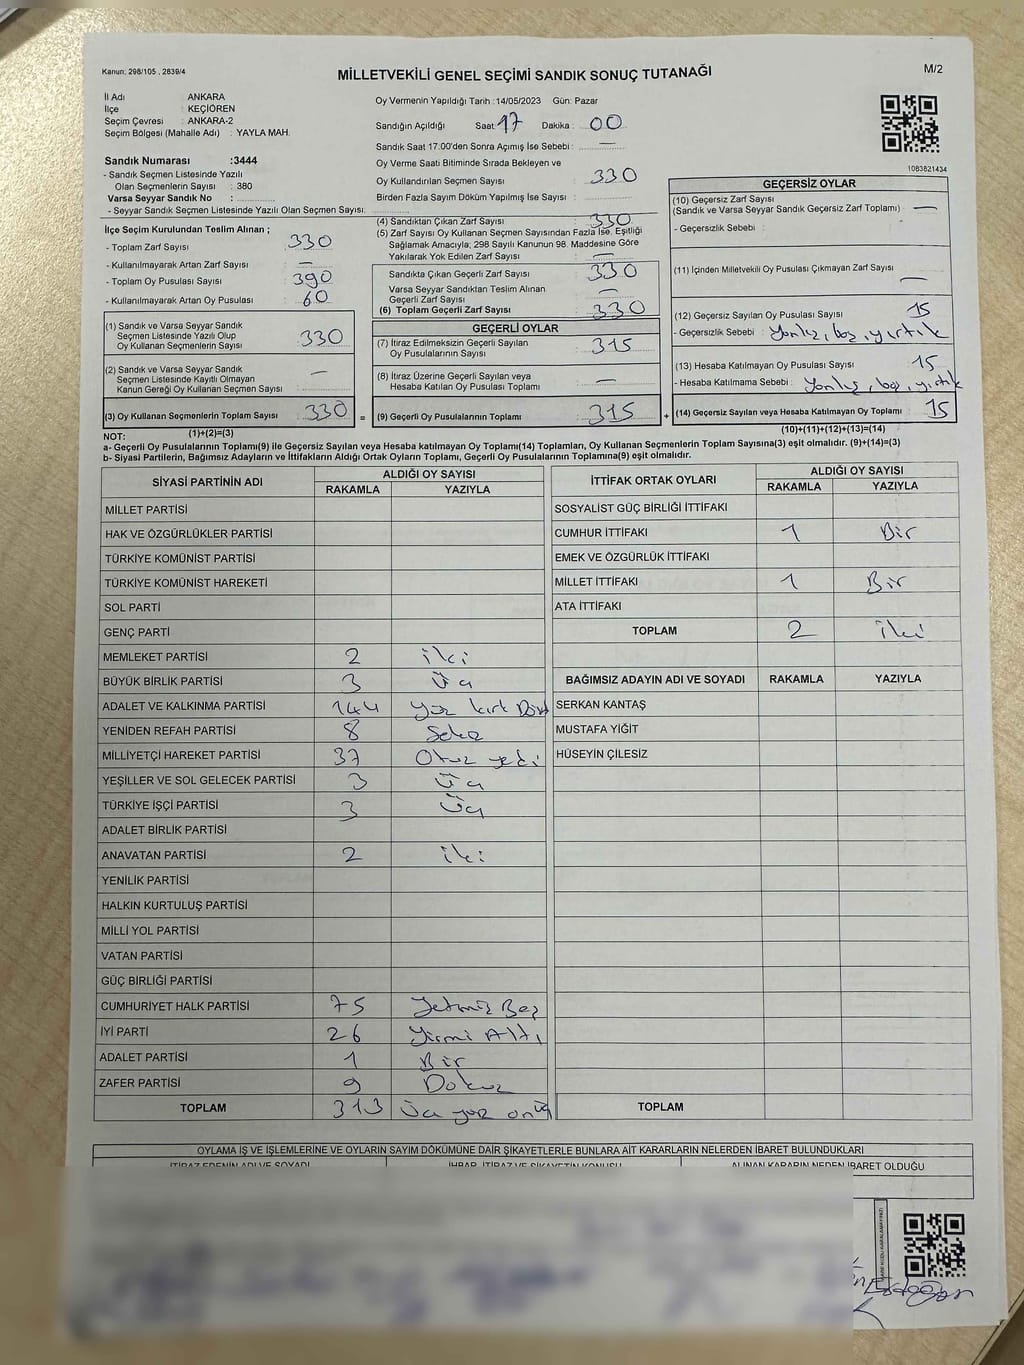 Kanun: 298/105 , 2839/4
MİLLETVEKİLİ GENEL SEÇİMİ SANDIK SONUÇ TUTANAĞI
M/2
İl Adı ANKARA
İlçe : KEÇİÖREN
Seçim Çevresi : ANKARA-2
Seçim Bölgesi (Mahalle Adı) : YAYLA MAH.
Sandık Numarası :3444
- Sandık Seçmen Listesinde Yazılı
Olan Seçmenlerin Sayısı : 380
Varsa Seyyar Sandık No :
- Seyyar Sandık Seçmen Listesinde Yazılı Olan Seçmen Sayısı:
Oy Vermenin Yapıldığı Tarih :14/05/2023 Gün: Pazar
Sandığın Açıldığı Saat: 17 Dakika : 00
Sandık Saat 17:00'den Sonra Açımış İse Sebebi : —
Oy Verme Saati Bitiminde Sırada Bekleyen ve
Oy Kullandırılan Seçmen Sayısı : 330
Birden Fazla Sayım Döküm Yapılmış İse Sayısı :
1083821434
İlçe Seçim Kurulundan Teslim Alınan ;
- Toplam Zarf Sayısı : 330
- Kullanılmayarak Artan Zarf Sayısı : —
- Toplam Oy Pusulası Sayısı : 390
- Kullanılmayarak Artan Oy Pusulası : 60
(1) Sandık ve Varsa Seyyar Sandık
Seçmen Listesinde Yazılı Olup
Oy Kullanan Seçmenlerin Sayısı : 330
(2) Sandık ve Varsa Seyyar Sandık
Seçmen Listesinde Kayıtlı Olmayan
Kanun Gereği Oy Kullanan Seçmen Sayısı : —
(3) Oy Kullanan Seçmenlerin Toplam Sayısı : 330 =
(4) Sandıktan Çıkan Zarf Sayısı : 330
(5) Zarf Sayısı Oy Kullanan Seçmen Sayısından Fazla İse, Eşitliği
Sağlamak Amacıyla; 298 Sayılı Kanunun 98. Maddesine Göre
Yakılarak Yok Edilen Zarf Sayısı : —
Sandıkta Çıkan Geçerli Zarf Sayısı : 330
Varsa Seyyar Sandıktan Teslim Alınan
Geçerli Zarf Sayısı : —
(6) Toplam Geçerli Zarf Sayısı : 330
GEÇERLİ OYLAR
(7) İtiraz Edilmeksizin Geçerli Sayılan
Oy Pusulalarının Sayısı : 315
(8) İtiraz Üzerine Geçerli Sayılan veya
Hesaba Katılan Oy Pusulası Toplamı : —
(9) Geçerli Oy Pusulalarının Toplamı : 315 +
GEÇERSİZ OYLAR
(10) Geçersiz Zarf Sayısı
(Sandık ve Varsa Seyyar Sandık Geçersiz Zarf Toplamı) : —
- Geçersizlik Sebebi :
(11) İçinden Milletvekili Oy Pusulası Çıkmayan Zarf Sayısı : —
(12) Geçersiz Sayılan Oy Pusulası Sayısı : 15
- Geçersizlik Sebebi : Yanlış, boş, yırtık
(13) Hesaba Katılmayan Oy Pusulası Sayısı : 15
- Hesaba Katılmama Sebebi : Yanlış, boş, yırtık
(14) Geçersiz Sayılan veya Hesaba Katılmayan Oy Toplamı : 15
NOT: (1)+(2)=(3) (10)+(11)+(12)+(13)=(14)
a- Geçerli Oy Pusulalarının Toplamı(9) ile Geçersiz Sayılan veya Hesaba katılmayan Oy Toplamı(14) Toplamları, Oy Kullanan Seçmenlerin Toplam Sayısına(3) eşit olmalıdır. (9)+(14)=(3)
b- Siyasi Partilerin, Bağımsız Adayların ve İttifakların Aldığı Ortak Oyların Toplamı, Geçerli Oy Pusulalarının Toplamına(9) eşit olmalıdır.
SİYASİ PARTİNİN ADI ALDIĞI OY SAYISI
RAKAMLA YAZIYLA
MİLLET PARTİSİ
HAK VE ÖZGÜRLÜKLER PARTİSİ
TÜRKİYE KOMÜNİST PARTİSİ
TÜRKİYE KOMÜNİST HAREKETİ
SOL PARTİ
GENÇ PARTİ
MEMLEKET PARTİSİ 2 iki
BÜYÜK BİRLİK PARTİSİ 3 Üç
ADALET VE KALKINMA PARTİSİ 144 yüz kırk Dört
YENİDEN REFAH PARTİSİ 8 Sekiz
MİLLİYETÇİ HAREKET PARTİSİ 37 Otuz yedi
YEŞİLLER VE SOL GELECEK PARTİSİ 3 Üç
TÜRKİYE İŞÇİ PARTİSİ 3 Üç
ADALET BİRLİK PARTİSİ
ANAVATAN PARTİSİ 2 iki
YENİLİK PARTİSİ
HALKIN KURTULUŞ PARTİSİ
MİLLİ YOL PARTİSİ
VATAN PARTİSİ
GÜÇ BİRLİĞİ PARTİSİ
CUMHURİYET HALK PARTİSİ 75 Yetmiş Beş
İYİ PARTİ 26 Yirmi Altı
ADALET PARTİSİ 1 Bir
ZAFER PARTİSİ 9 Dokuz
TOPLAM 313 Üç yüz onüç
İTTİFAK ORTAK OYLARI ALDIĞI OY SAYISI
RAKAMLA YAZIYLA
SOSYALİST GÜÇ BİRLİĞİ İTTİFAKI
CUMHUR İTTİFAKI 1 Bir
EMEK VE ÖZGÜRLÜK İTTİFAKI
MİLLET İTTİFAKI 1 Bir
ATA İTTİFAKI
TOPLAM 2 iki
BAĞIMSIZ ADAYIN ADI VE SOYADI RAKAMLA YAZIYLA
SERKAN KANTAŞ
MUSTAFA YİĞİT
HÜSEYİN ÇİLESİZ
TOPLAM
OYLAMA İŞ VE İŞLEMLERİNE VE OYLARIN SAYIM DÖKÜMÜNE DAİR ŞİKAYETLERLE BUNLARA AİT KARARLARIN NELERDEN İBARET BULUNDUKLARI
İTİRAZ EDENİN ADI VE SOYADI İHBAR, İTİRAZ VE ŞİKAYETİN KONUSU ALINAN KARARIN NEDEN İBARET OLDUĞU